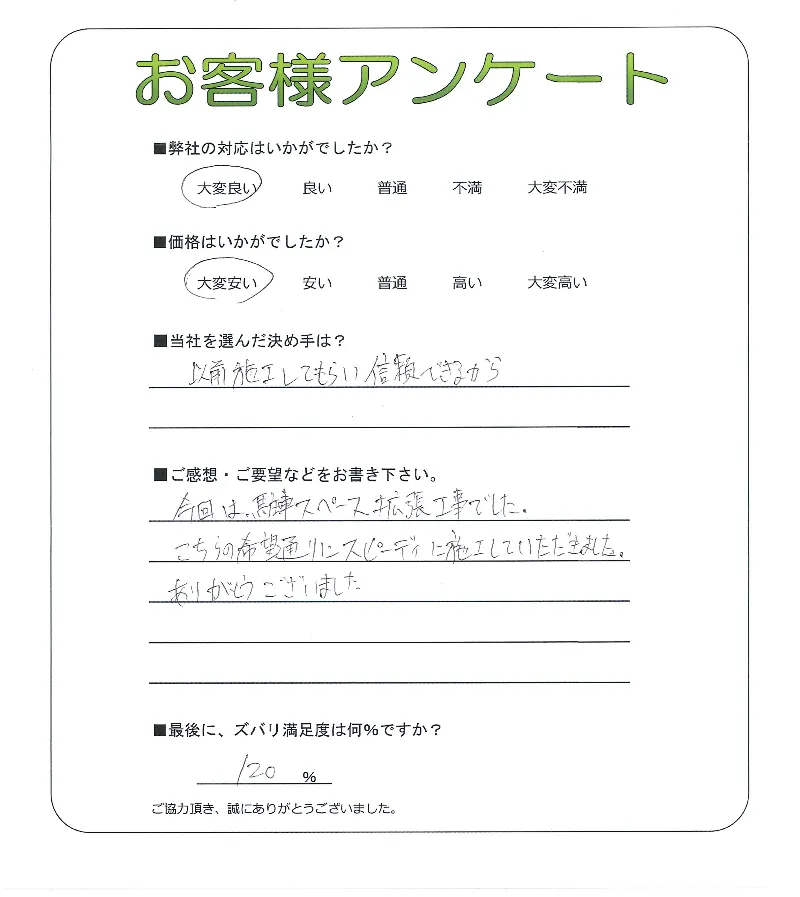 お客様アンケート
■弊社の対応はいかがでしたか？
大変良い 良い 普通 不満 大変不満
■価格はいかがでしたか？
大変安い 安い 普通 高い 大変高い
■当社を選んだ決め手は？
以前施工してもらい信頼できるから
■ご感想・ご要望などをお書き下さい。
今回は、駐車スペース拡張工事でした。
こちらの希望通りにスピーディに施工していただきました。
ありがとうございました
■最後に、ズバリ満足度は何％ですか？
120 %
ご協力頂き、誠にありがとうございました。